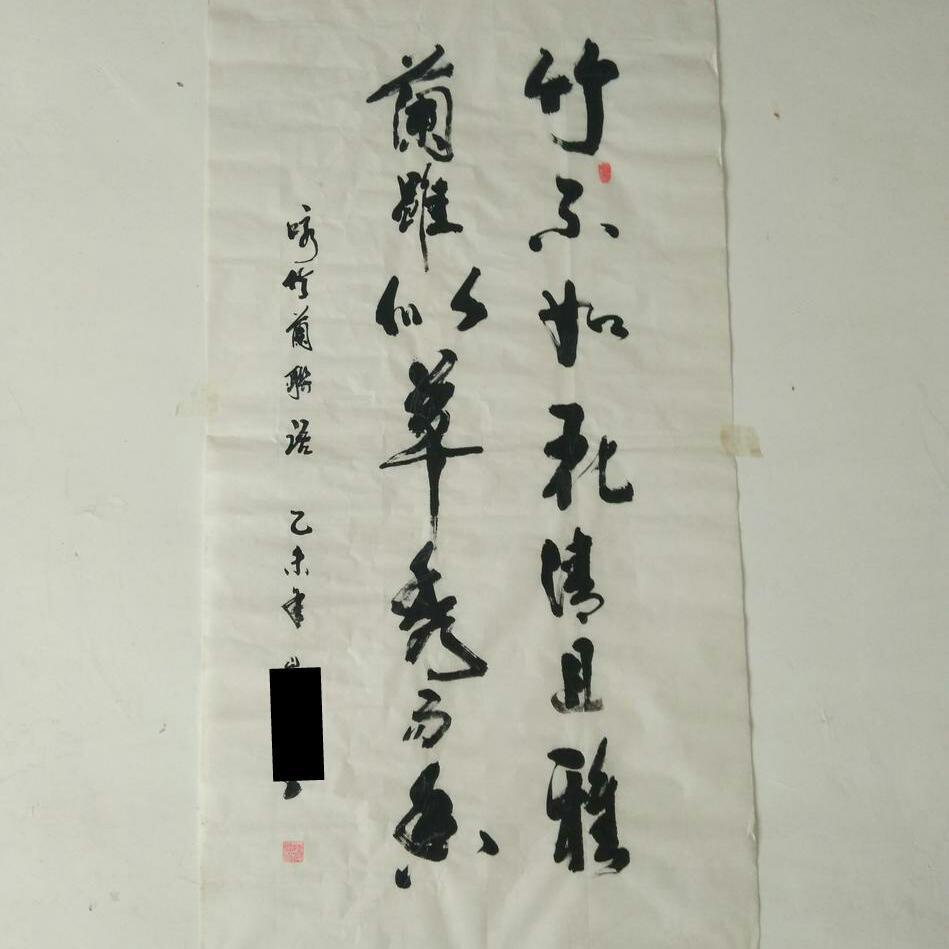 竹不如花清且雅
蘭雖似草秀而香
咏竹蘭聯語 乙未年